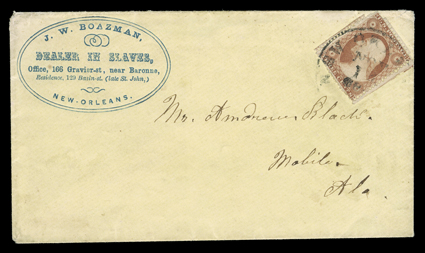 J. W. BOAZMAN,
DEALER IN SLAVES,
Office, 166 Gravier-st., near Baronne,
Residence, 129 Basin-st. (late St. John,)
NEW-ORLEANS.
Mr. Andrew
Mobile
Ala.